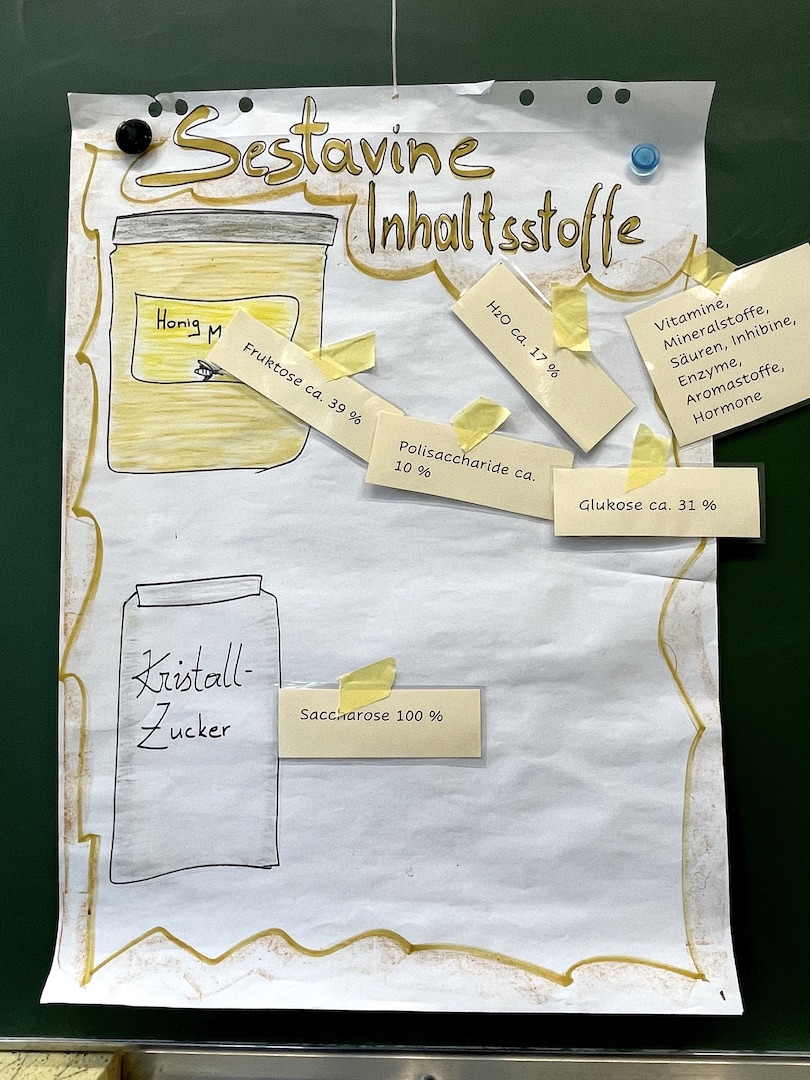 Sestavine
Inhaltsstoffe
Honig
Fruktose ca. 39 %
H2O ca. 17 %
Vitamine,
Mineralstoffe,
Säuren, Inhibine,
Enzyme,
Aromastoffe,
Hormone
Polisaccharide ca.
10 %
Glukose ca. 31 %
Kristall-
Zucker
Saccharose 100 %